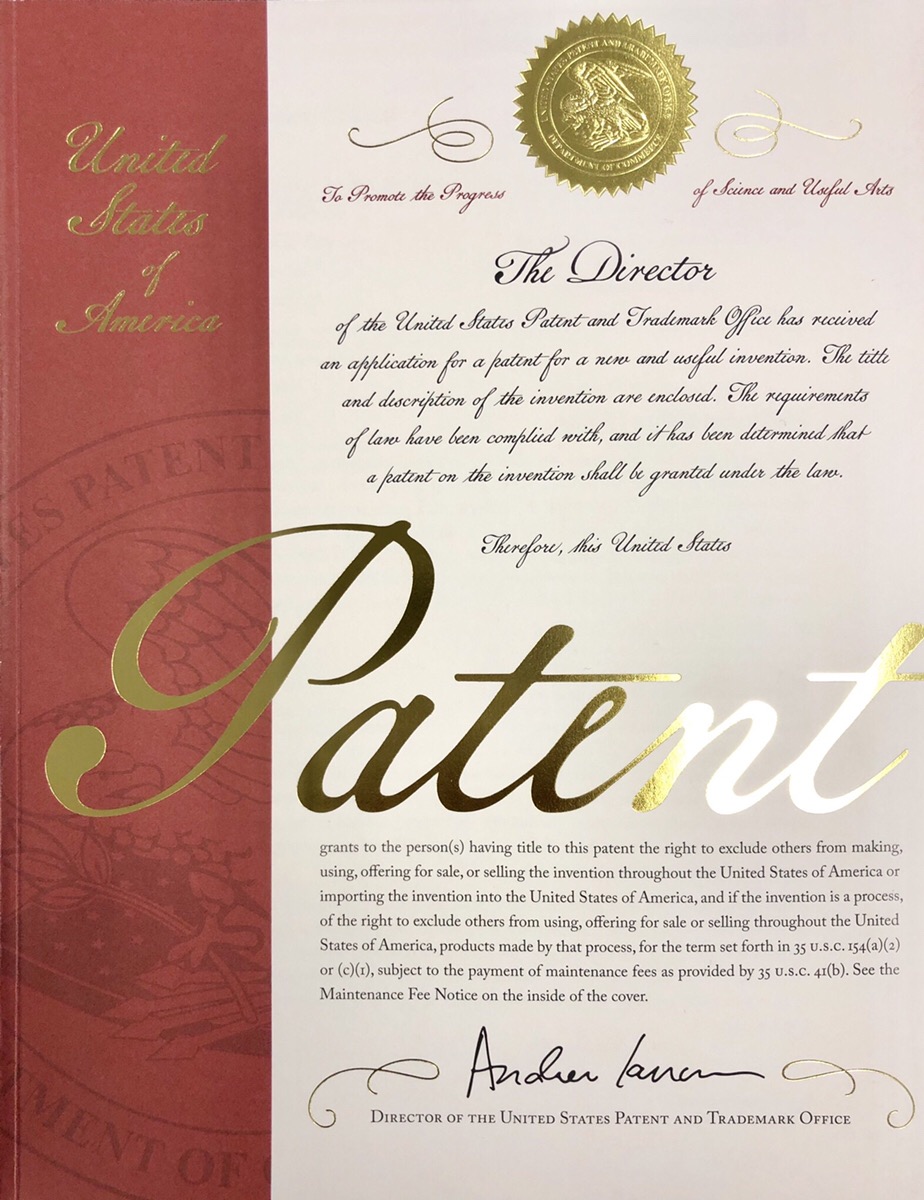 United
States
of
America
UNITED STATES PATENT AND TRADEMARK OFFICE
DEPARTMENT OF COMMERCE
To Promote the Progress
of Science and Useful Arts
The Director
of the United States Patent and Trademark Office has received
an application for a patent for a new and useful invention. The title
and description of the invention are enclosed. The requirements
of law have been complied with, and it has been determined that
a patent on the invention shall be granted under the law.
Therefore, this United States
ES PATENT
Patent
grants to the person(s) having title to this patent the right to exclude others from making,
using, offering for sale, or selling the invention throughout the United States of America or
importing the invention into the United States of America, and if the invention is a process,
of the right to exclude others from using, offering for sale or selling throughout the United
States of America, products made by that process, for the term set forth in 35 U.S.C. 154(a)(2)
or (c)(1), subject to the payment of maintenance fees as provided by 35 U.S.C. 41(b). See the
Maintenance Fee Notice on the inside of the cover.
Andrei Iancu
DIRECTOR OF THE UNITED STATES PATENT AND TRADEMARK OFFICE
MENT OF